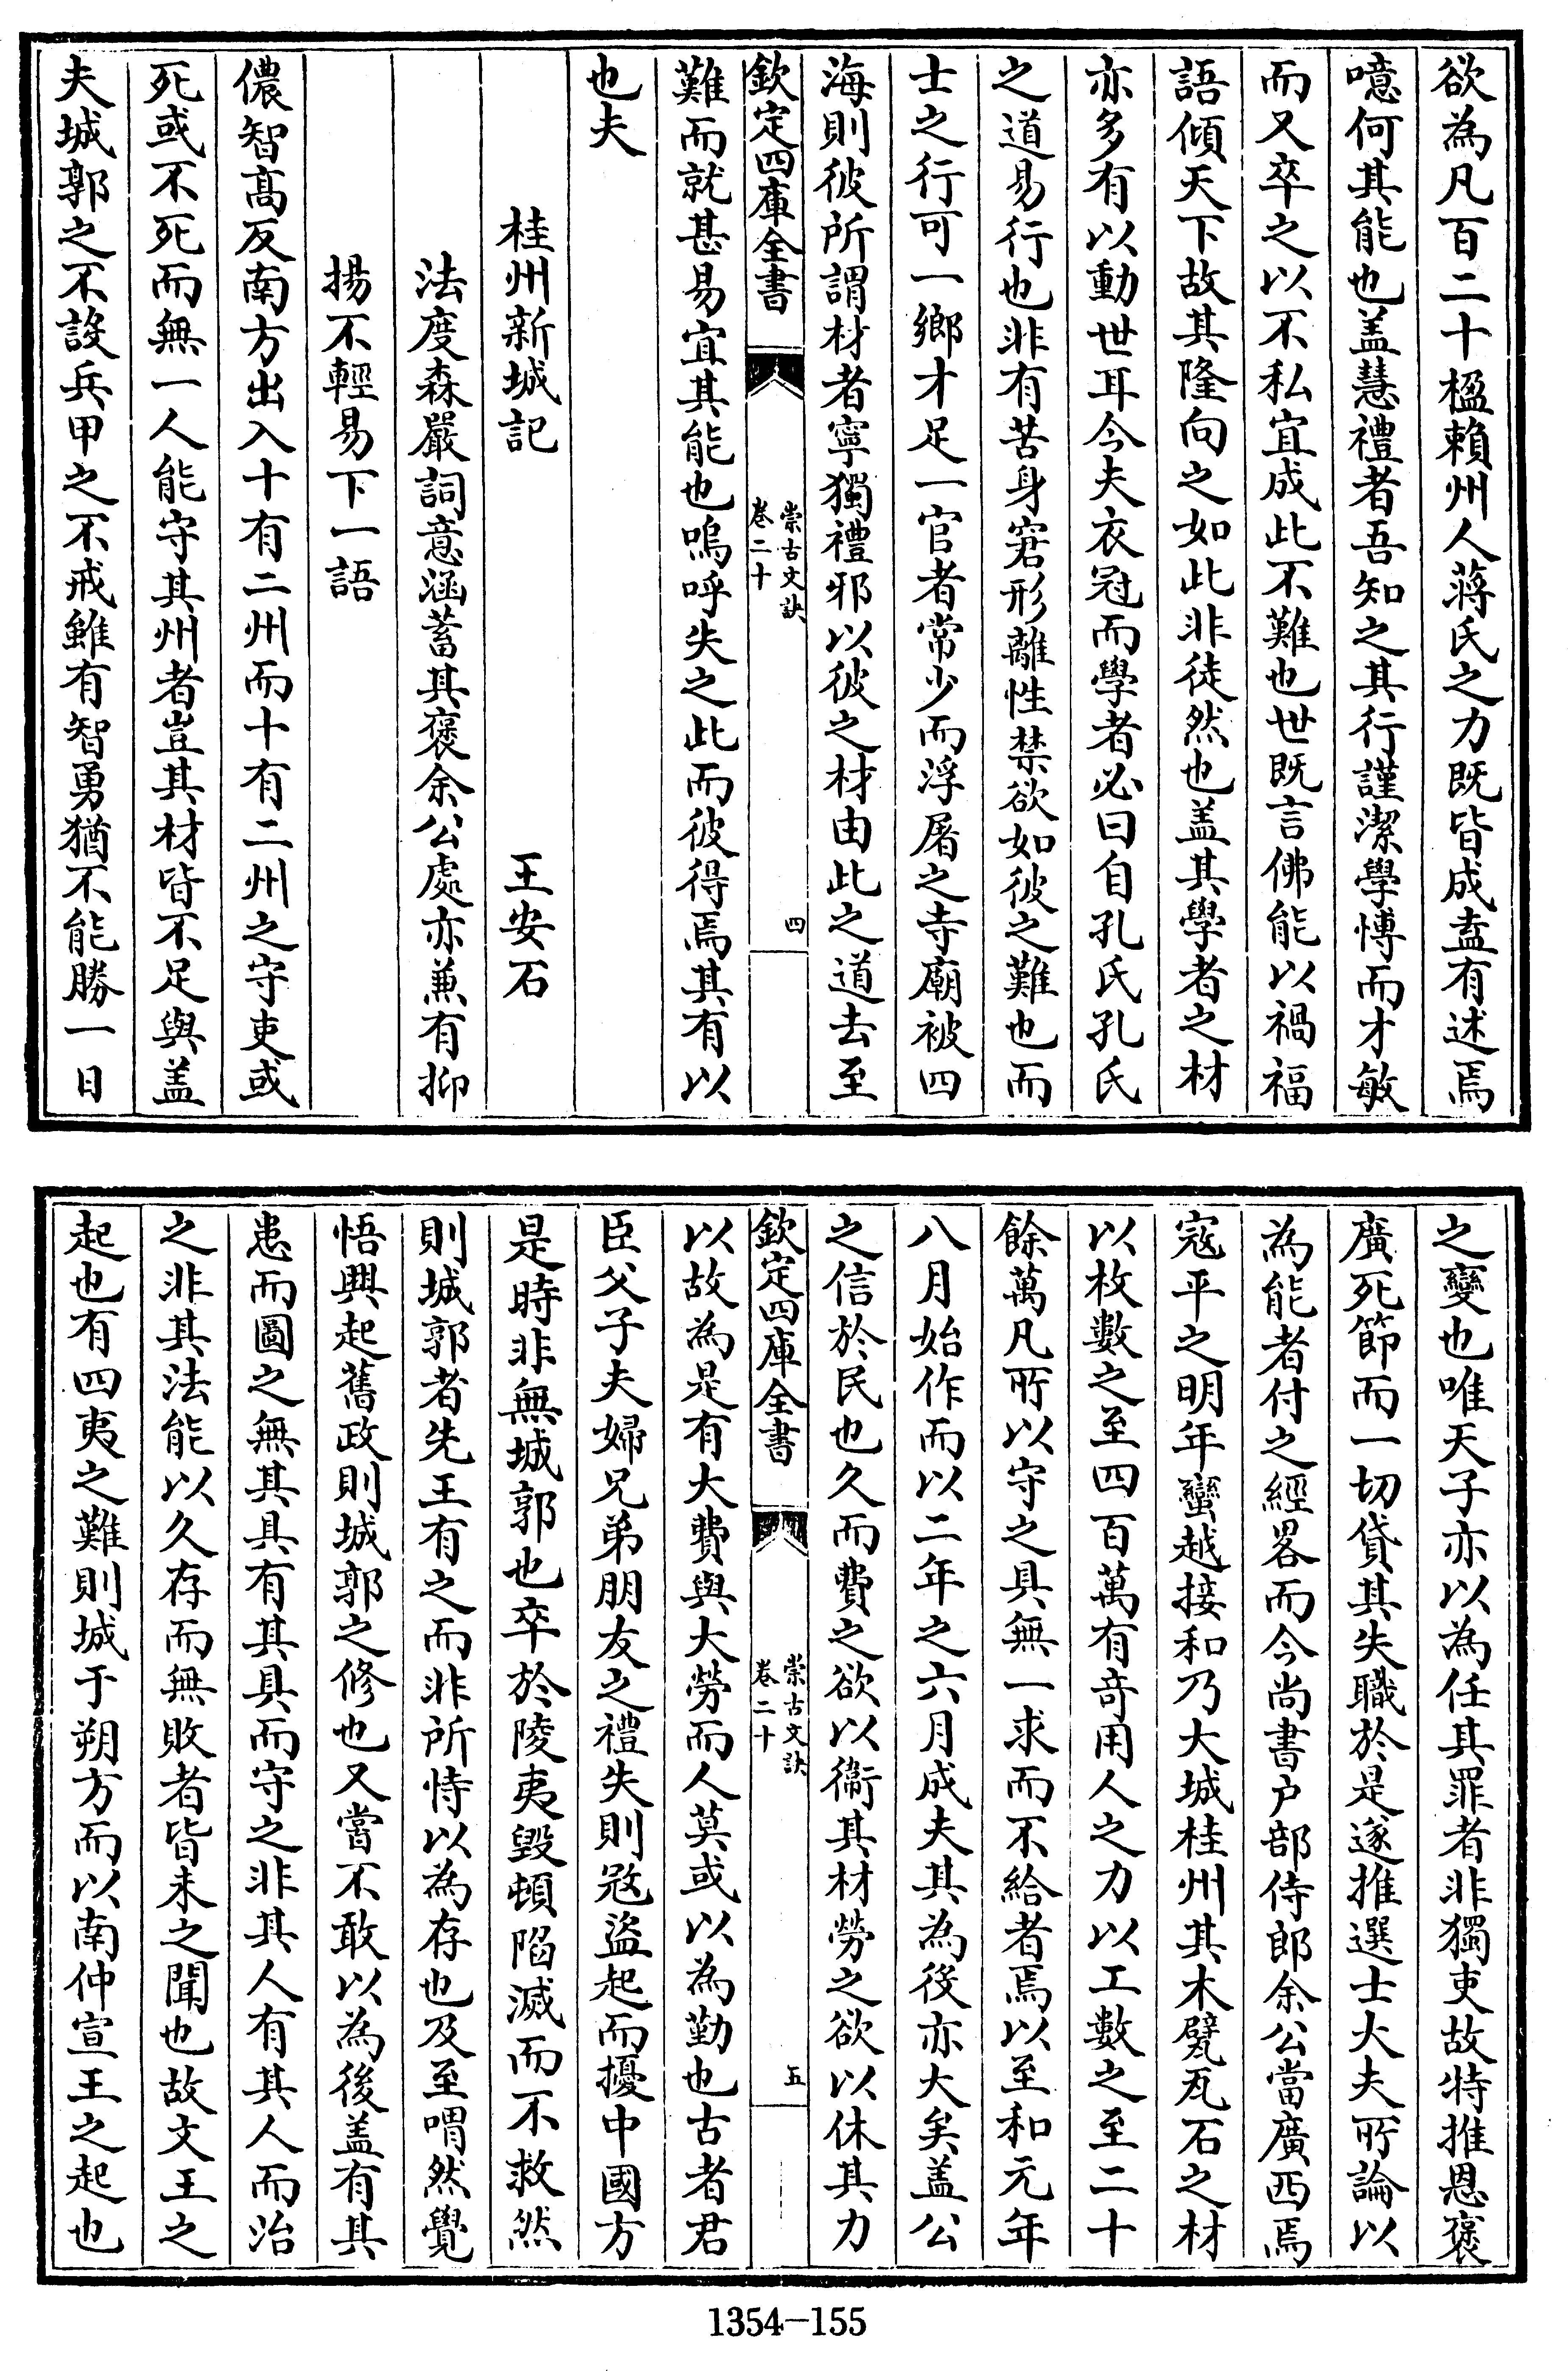 欲為凡百二十楹賴州人蔣氏之力既皆成盍有述焉
噫何其能也盖慧禮者吾知之其行謹潔學博而才敏
而又卒之以不私宜成此不難也世既言佛能以禍福
語傾天下故其隆向之如此非徒然也盖其學者之材
亦多有以動世耳今夫衣冠而學者必曰自孔氏孔氏
之道易行也非有苦身窘形離性禁欲如彼之難也而
士之行可一鄉才足一官者常少而浮屠之寺廟被四
海則彼所謂材者寧獨禮邪以彼之材由此之道去至
欽定四庫全書
崇古文訣
卷二十
四
難而就甚易宜其能也嗚呼失之此而彼得焉其有以
也夫
桂州新城記 王安石
法度森嚴詞意涵蓄其褒余公處亦兼有抑
揚不輕易下一語
儂智高反南方出入十有二州而十有二州之守吏或
死或不死而無一人能守其州者豈其材皆不足與盖
夫城郭之不設兵甲之不戒雖有智勇猶不能勝一日
之變也唯天子亦以為任其罪者非獨吏故特推恩褒
廣死節而一切貸其失職於是遂推選士大夫所論以
為能者付之經畧而今尚書户部侍郎余公當廣西焉
寇平之明年蠻越接和乃大城桂州其木甓瓦石之材
以枚數之至四百萬有奇用人之力以工數之至二十
餘萬凡所以守之具無一求而不給者焉以至和元年
八月始作而以二年之六月成夫其為役亦大矣盖公
之信於民也久而費之欲以衞其材勞之欲以休其力
欽定四庫全書
崇古文訣
卷二十
五
以故為是有大費與大勞而人莫或以為勤也古者君
臣父子夫婦兄弟朋友之禮失則冦盜起而擾中國方
是時非無城郭也卒於陵夷毀頓陷滅而不救然
則城郭者先王有之而非所恃以為存也及至喟然覺
悟興起舊政則城郭之修也又嘗不敢以為後盖有其
患而圖之無其具有其具而守之非其人有其人而治
之非其法能以久存而無敗者皆未之聞也故文王之
起也有四夷之難則城于朔方而以南仲宣王之起也
1354—155